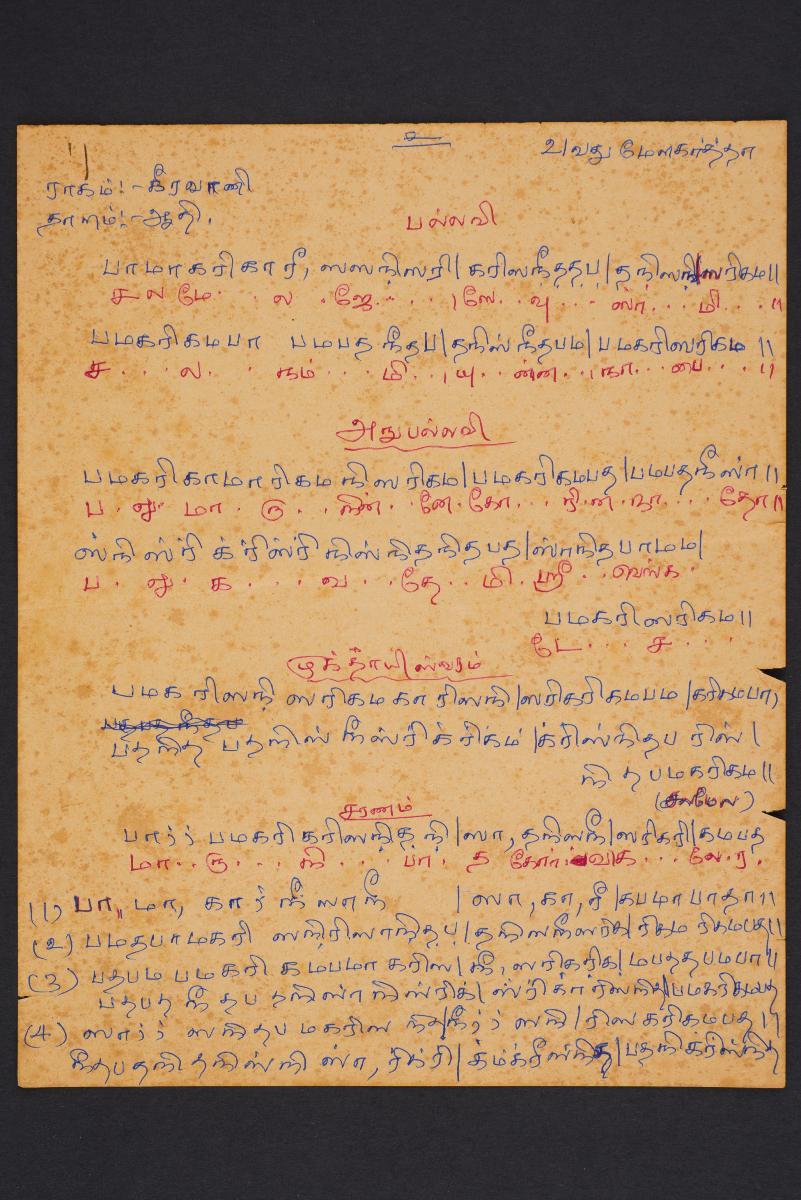 உ
21வது மேளகர்த்தா
ராகம்:- கீரவாணி
தாளம்:- ஆதி.
பல்லவி
பாமாகரிகாரீ, ஸஸநிஸரி| கரிஸநீததப|தநிஸநி|ஸரிகம||
சலமே· · ல · ஜே· · · · |ஸே· · வு · · · ஸா் · · · மி · · · ||
பமகரிகமபா பமபத நீதப|தநிஸ் நீதபம|பமகரிஸரிகம ||
ச · · · ல · · · கம் · · · மி · · |யு · · ன்ன · · |நா · · பை · · · ||
அநுபல்லவி
பமகரிகாமாரிகம நிஸரிகம|பமகரிகமபத|பமபதநீஸ்ா||
ஸ்நிஸ்ரி க்ரிஸ்ரிநிஸ்நிதநிதபத|ஸ்ாநிதபாமம|
ப · லு · க · · · வ · · தே · · மி · ஸ்ரீ · · வெங்க ·
பமகரிஸரிகம||
டே · · · ச · · ·
முக்தாயிஸ்வரம்
பமக ரிஸநி ஸரிகமகா ரிஸநி|ஸரிகரிகமபம|கரிகமபா,
பதநித பதநிஸ் நீஸ்ரிக்ரிக்ம் |க்ரிஸ்நிதப ரிஸ்|
நி தபமகரிகம||
(சலமேல)
சரணம்
பார்ர் பமகரி கரிஸநித நி|ஸா, தநிஸநீ|ஸரிகரி|கமபத
(1) பா,, மா, கா ர் நீ ஸாநீ |ஸா,கா,ரீ|கபமாபாதா||
(2) பமதபாமகரி ஸநிரிஸாநிதப|தநிஸநீஸரிக|ரிகம ரிகமபத||
(3) பதபம பமகரி கமபமா கரிஸ|நீ, ஸரிகரிக|மபததபமபா||
பதபத நீ தப தநிஸ்ா நிஸ்ரிக்|ஸ்ரிகாரிஸநித|பமகரிகமபத
(4) ஸார்ர் ஸநிதப மகரிஸ நித|நீர்ர் ஸநி|ரிஸகரிகமபத||
நீதபதநிதநிஸ்நி ஸ்ா, ரிக்ரி|க்ம்க்ரீஸ்நித|பதநிகரிஸ்நித